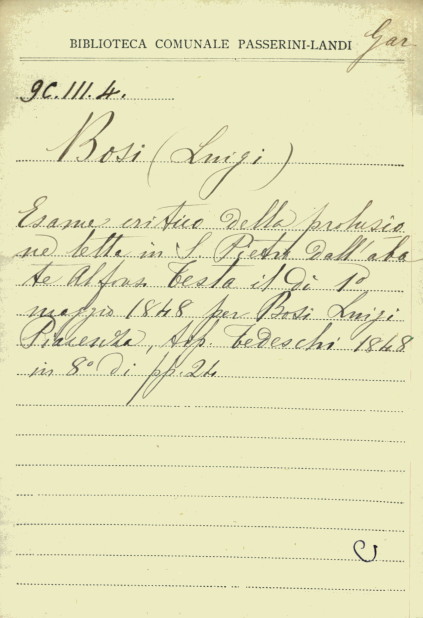 BIBLIOTECA COMUNALE PASSERINI-LANDI Gar
9C.III.4.
Bosi (Luigi)
Esame critico della prolusio
ne letta in S. Pietro dall'aba
te Alfons. Testa il dì 1º
maggio 1848 per Bosi Luigi
Piacenza, tip. Tedeschi 1848
in 8º di pp. 24